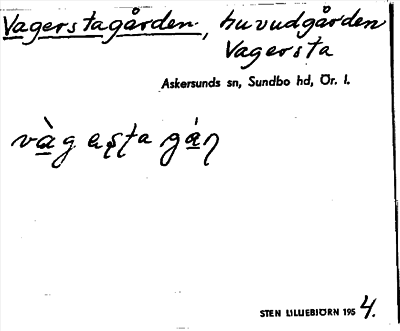 Vagerstagården, huvudgården
Vagersta
Askersunds sn, Sundbo hd, Ör. l.
STEN LILLIEBJÖRN 1954.